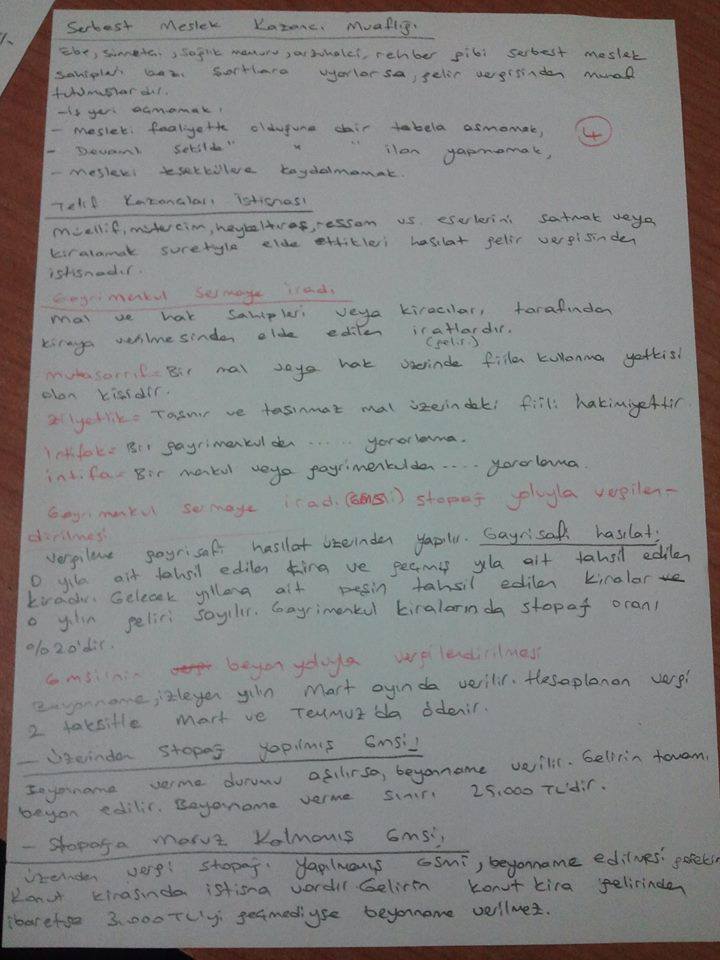 Serbest Meslek Kazancı Muaflığı
Ebe, sünnetçi, sağlık memuru, arzuhalci, rehber gibi serbest meslek
sahipleri bazı şartlara uyarlarsa, gelir vergisinden muaf
tutmuşlardır.
-İş yeri açmamak,
- Mesleki faaliyette olduğuna dair tabela asmamak,
4
- Devamlı şekilde " " " ilan yapmamak,
- Mesleki teşekküllere kaydolmamak.
Telif Kazançları İstisnası
Müellif, mütercim, heykeltıraş, ressam vs. eserlerini satmak veya
kiralamak suretiyle elde ettikleri hasılat gelir vergisinden
istisnadır.
Gayrimenkul Sermaye iradı
Mal ve hak sahipleri veya kiracıları tarafından
kiraya verilmesinden elde edilen iratlardır.
(gelir.)
Mutasarrıf= Bir mal veya hak üzerinde fiilen kulanma yetkisi
olan kişidir.
Zilyetlik= Taşınır ve taşınmaz mal üzerindeki fiili hakimiyettir
İrtifak= Bir gayrimenkulden ..... yararlanma.
intifa= Bir menkul veya gayrimenkulden .... yararlanma.
Gayrimenkul sermaye iradı (GMSİ) stopağ yoluyla vergilen-
dirilmesi
Vergileme gayrisafi hasılat üzerinden yapılır. Gayrisafi hasılat;
O yıla ait tahsil edilen kira ve geçmiş yıla ait tahsil edilen
kiradır. Gelecek yıllara ait peşin tahsil edilen kiralar ve
o yılın geliri sayılır. Gayrimenkul kiralarında stopağ oranı
%20'dir.
Gmsi'nin beyan yoluyla vergilendirilmesi
Beyanname, izleyen yılın Mart ayında verilir. Hesaplanan vergi
2 taksitle Mart ve Temmuz'da ödenir.
- Üzerinden stopağ yapılmış Gmsi;
Beyanname verme durumu aşılırsa, beyanname verilir. Gelirin tamamı
beyan edilir. Beyanname verme sınırı 25.000 TL'dir.
- Stopağa Maruz Kalmamış Gmsi;
Üzerinden vergi stopağı yapılmamış GSMİ, beyanname edilmesi gerekir
Konut kirasında istisna vardır Gelirin konut kira gelirinden
ibaretse 3.000 TL'yi geçmediyse beyanname verilmez.